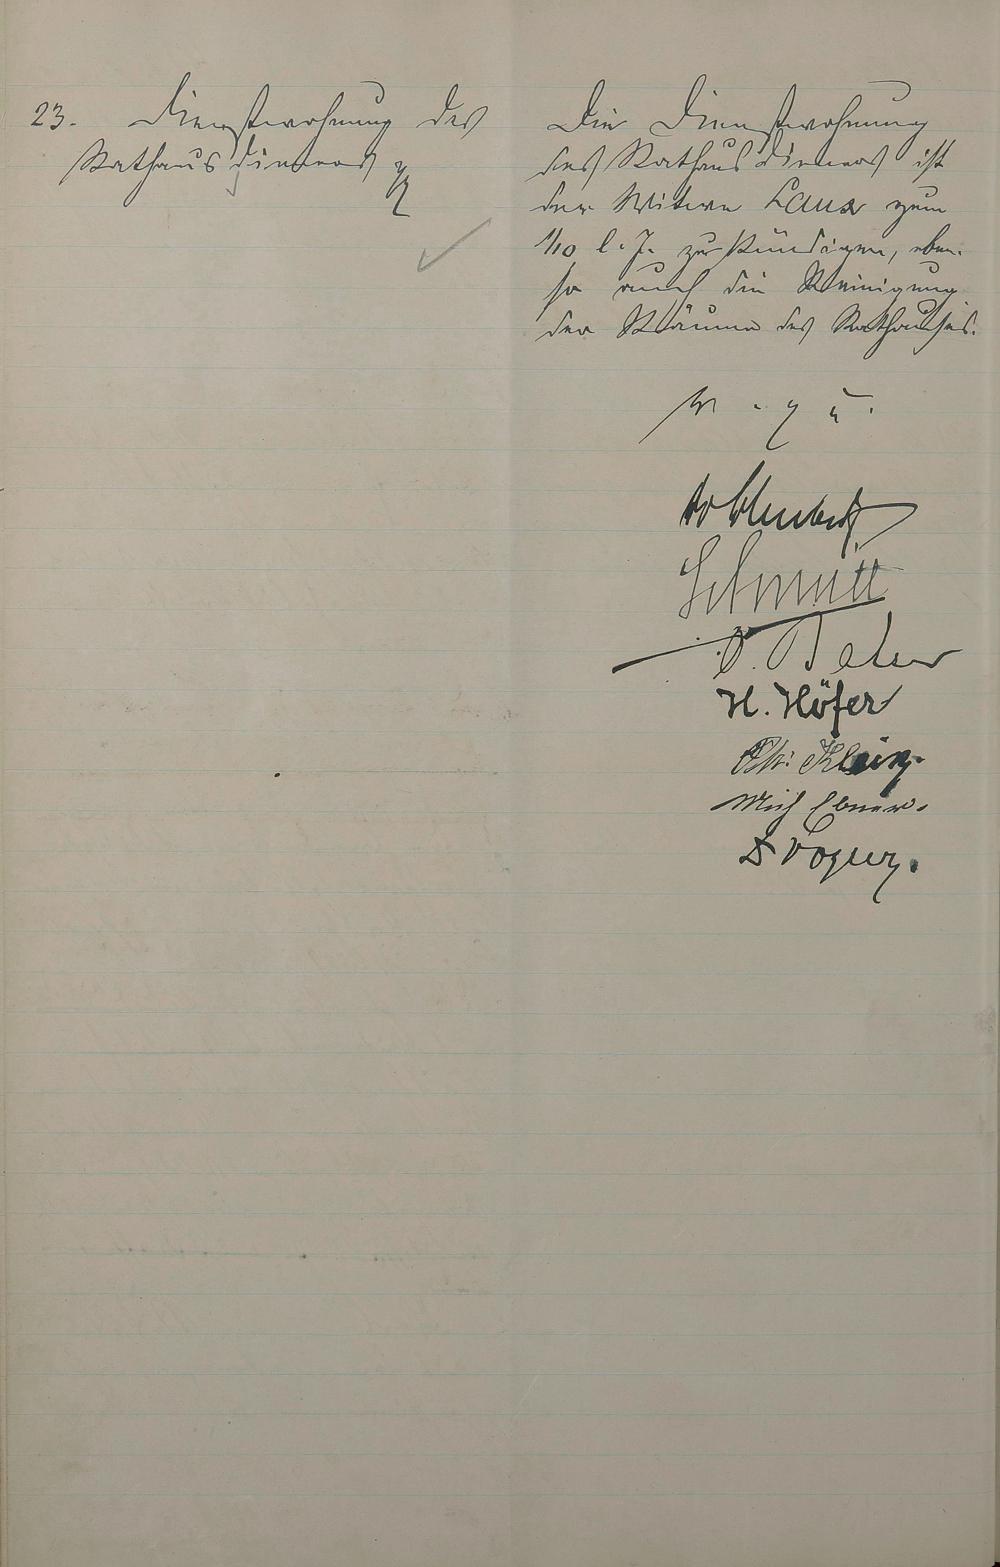 23. Dienstwohnung des
Rathausdieners
Die Dienstwohnung
des Rathausdieners ist
der Witwe Laux zum
1/10 l. J. zu kündigen, eben-
so auch die Reinigung
der Räume des Rathauses.
v. g. u.
Schmitt
H. Höfer
Klein
Mich Ebner.